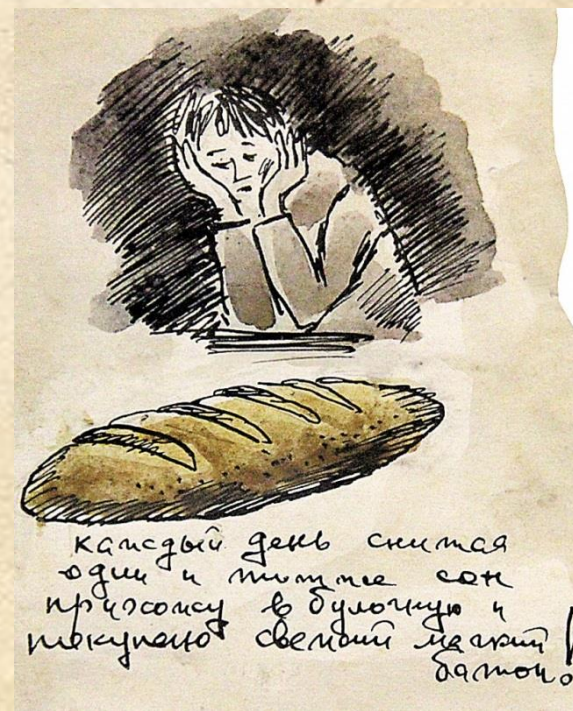 каждый день снитая
один и тотже сон
прихожу в булочную и
покупаю свежий мягкий
батон.